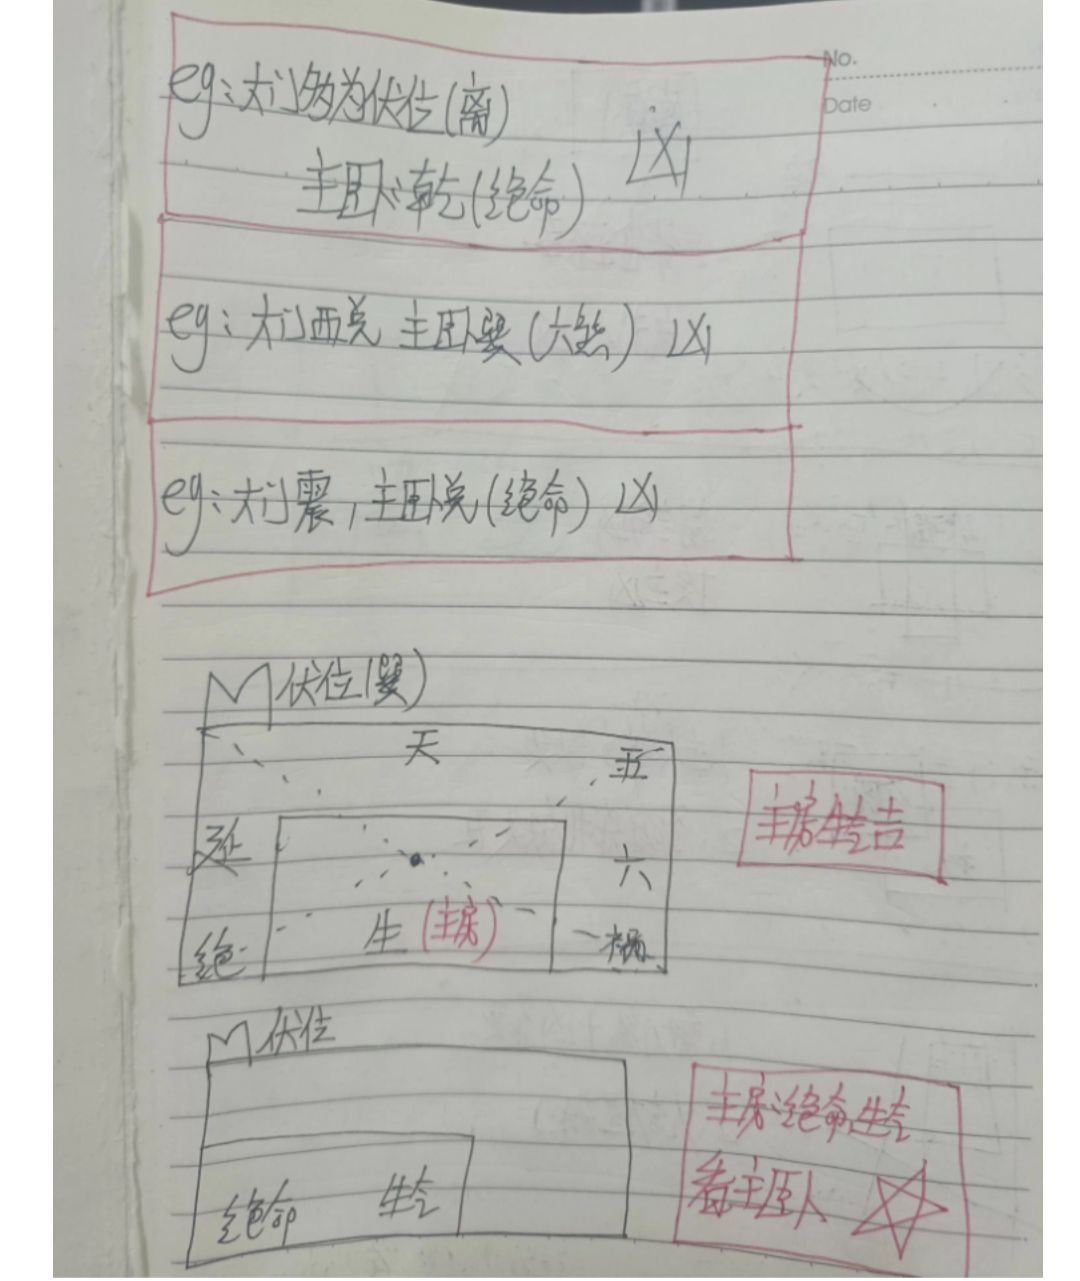 No.
Date
eg:大门多为伏位(离)
主卧:乾(绝命)
凶
eg:大门西兑 主卧巽(六煞) 凶
eg:大门震,主卧兑(绝命) 凶
伏位(巽)
天
五
延
六
生(主房)
绝
祸
主房生气吉
伏位
绝命 生气
主房:绝命,生气
看主卧